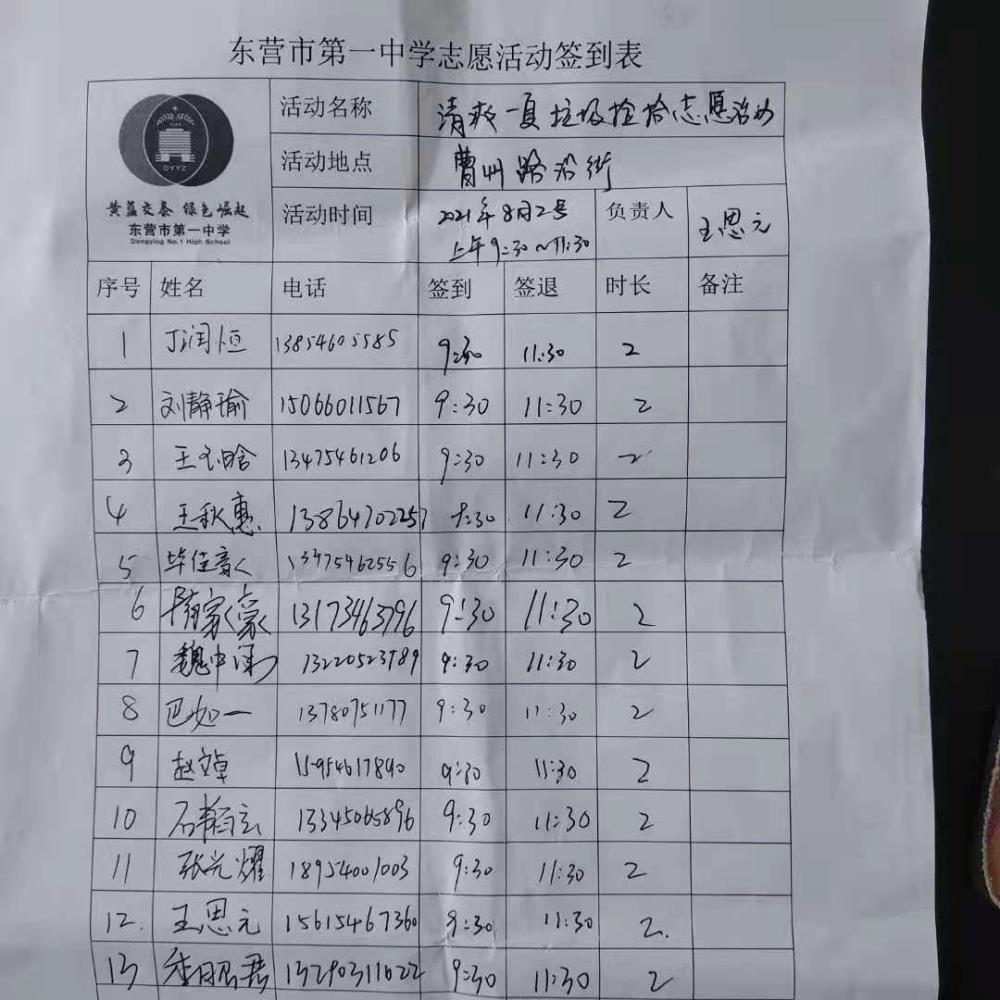 东营市第一中学志愿活动签到表
DYYZ
黄蓝交泰 绿色崛起
东营市第一中学
Dongying No.1 High School
活动名称 清爽一夏垃圾捡拾志愿活动
活动地点 曹州路沿街
活动时间 2021年8月2号 上午9:30~11:30 负责人 王思元
序号 姓名 电话 签到 签退 时长 备注
1 丁润恒 13854605585 9:30 11:30 2
2 刘静瑜 15066011567 9:30 11:30 2
3 王 晗 13475461206 9:30 11:30 2
4 王秋惠 13864702257 9:30 11:30 2
5 毕佳 13475462556 9:30 11:30 2
6 隋家豪 13173463796 9:30 11:30 2
7 魏中 13220523789 9:30 11:30 2
8 巴如一 13780751177 9:30 11:30 2
9 赵文卓 15954617840 9:30 11:30 2
10 石 13345065896 9:30 11:30 2
11 张光耀 18954001003 9:30 11:30 2
12. 王思元 15615467360 9:30 11:30 2.
13 君 13290311622 9:30 11:30 2